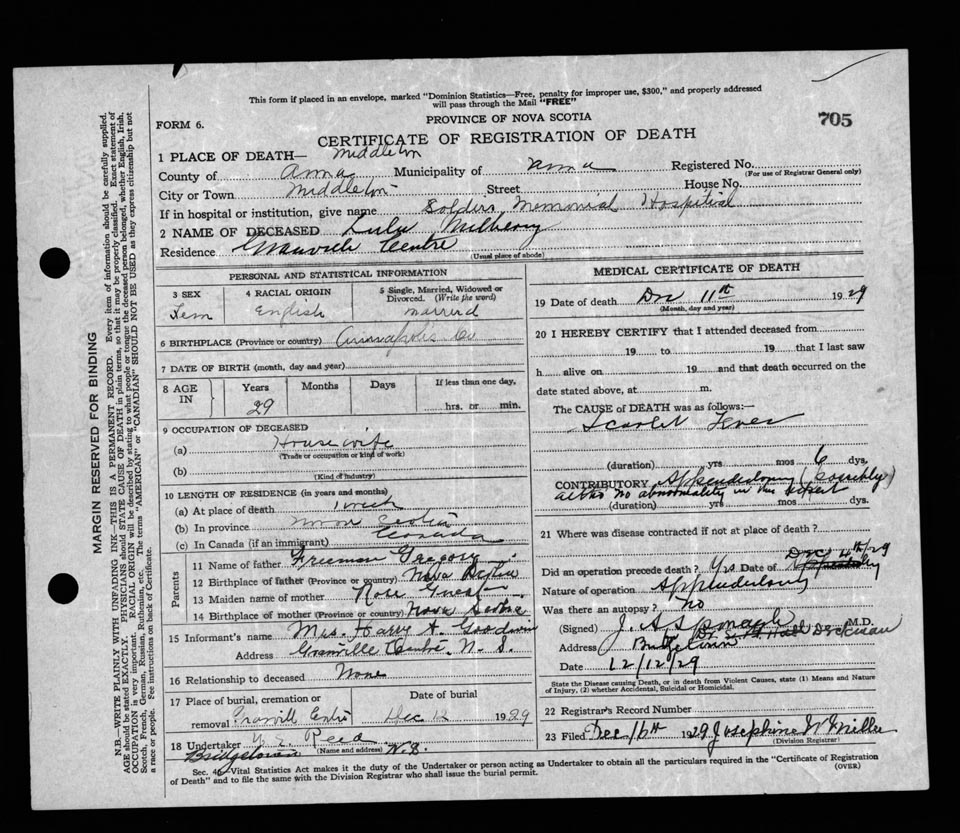 This form if placed in an envelope, marked "Dominion Statistics—Free, penalty for improper use, $300," and properly addressed
will pass through the Mail "FREE"
PROVINCE OF NOVA SCOTIA
705
FORM 6.
CERTIFICATE OF REGISTRATION OF DEATH
1 PLACE OF DEATH— Middleton
County of Anna Municipality of Anna Registered No.
(For use of Registrar General only)
City or Town Middleton Street House No.
If in hospital or institution, give name Solders Memorial Hospital
2 NAME OF DECEASED Lulu Milberry
Residence Granville Centre
(Usual place of abode)
PERSONAL AND STATISTICAL INFORMATION
3 SEX 4 RACIAL ORIGIN 5 Single, Married, Widowed or
Divorced. (Write the word)
Fem English Married
6 BIRTHPLACE (Province or country) Annapolis Co
7 DATE OF BIRTH (month, day and year)
8 AGE IN Years Months Days If less than one day,
29 hrs. or min.
9 OCCUPATION OF DECEASED
(a) House wife
(Trade or occupation or kind of work)
(b)
(Kind of Industry)
10 LENGTH OF RESIDENCE (in years and months)
(a) At place of death 1 week
(b) In province Nova Scotia
(c) In Canada (if an immigrant) Canada
Parents
11 Name of father Freeman Gregory
12 Birthplace of father (Province or country) Nova Scotia
13 Maiden name of mother Rose
14 Birthplace of mother (Province or country) Nova Scotia
15 Informant's name Mrs. Harry A. Goodwin
Address Granville Centre, N. S.
16 Relationship to deceased None
17 Place of burial, cremation or Date of burial
removal Granvill Centre Dec 12 1929
18 Undertaker Reed
(Name and address)
Bridgetown N.S.
MEDICAL CERTIFICATE OF DEATH
19 Date of death Dec 11th 1929
(Month, day and year)
20 I HEREBY CERTIFY that I attended deceased from
19 to 19 that I last saw
h alive on 19 and that death occurred on the
date stated above, at m.
The CAUSE of DEATH was as follows:—
Scarlet Fever
(duration) yrs mos 6 dys.
CONTRIBUTORY Appendectomy (possibly)
altho no abnormality in this respect
(duration) yrs mos dys.
21 Where was disease contracted if not at place of death?
Dec 4th/29
Did an operation precede death? Yes Date of
Nature of operation Appendectomy
Was there an autopsy? no
(Signed) J. A. Sponagle M.D.
Address
Date 12/12/29
State the Disease causing Death, or in death from Violent Causes, state (1) Means and Nature
of Injury, (2) whether Accidental, Suicidal or Homicidal.
22 Registrar's Record Number
23 Filed Dec 16th 1929 Josephine W Miller
(Division Registrar)
Sec. 46—Vital Statistics Act makes it the duty of the Undertaker or person acting as Undertaker to obtain all the particulars required in the "Certificate of Registration
of Death" and to file the same with the Division Registrar who shall issue the burial permit.
(OVER)
MARGIN RESERVED FOR BINDING
N.B.—WRITE PLAINLY WITH UNFADING INK—THIS IS A PERMANENT RECORD. Every item of information should be carefully supplied.
AGE should be stated EXACTLY. PHYSICIANS should STATE CAUSE OF DEATH in plain terms, so that it may be properly classified. Exact statement of
OCCUPATION is very important. RACIAL ORIGIN will be described by stating to what people or tongue the deceased person belonged, whether English, Irish,
Scotch, French, German, Russian, Ruthenian, etc. The terms "AMERICAN" or "CANADIAN" SHOULD NOT BE USED as they express citizenship but not
a race or people. See instructions on back of Certificate.